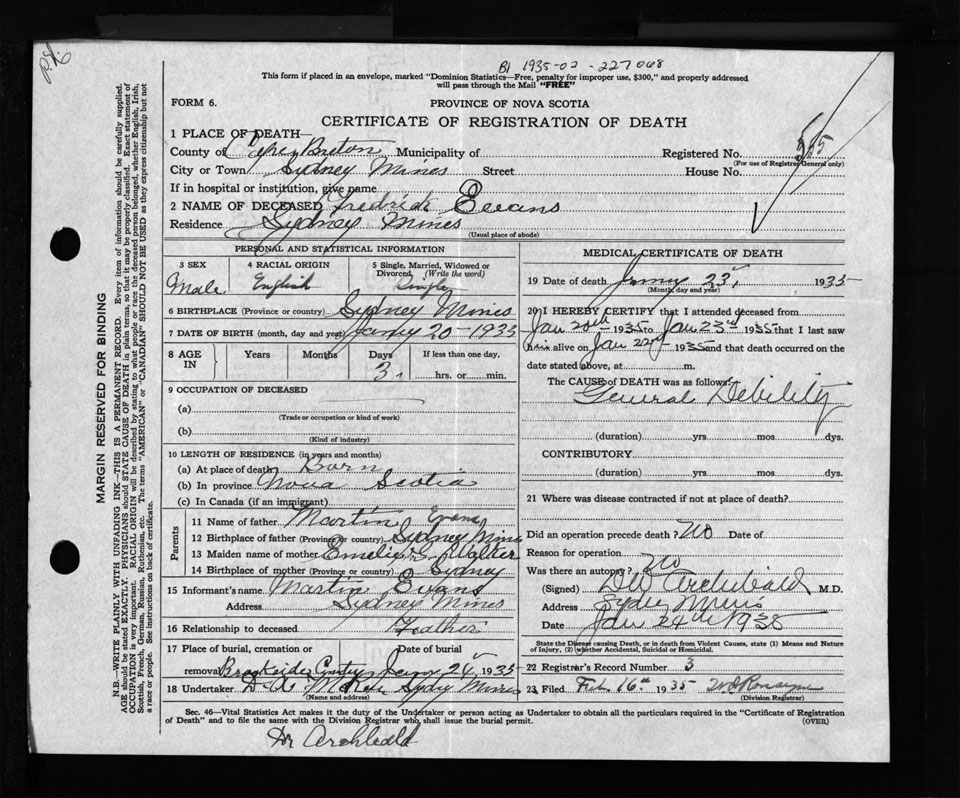 B1 1935-02-227068
This form if placed in an envelope, marked "Dominion Statistics—Free, penalty for improper use, $300," and properly addressed
will pass through the Mail "FREE"
FORM 6.
PROVINCE OF NOVA SCOTIA
CERTIFICATE OF REGISTRATION OF DEATH
1 PLACE OF DEATH—
County of Cape Breton Municipality of Registered No.
(For use of Registrar General only)
City or Town Sydney Mines Street House No.
If in hospital or institution, give name
2 NAME OF DECEASED Fredrick Evans
Residence Sydney Mines
(Usual place of abode)
PERSONAL AND STATISTICAL INFORMATION
3 SEX 4 RACIAL ORIGIN 5 Single, Married, Widowed or Divorced, (Write the word)
Male English Single
6 BIRTHPLACE (Province or country) Sydney Mines
7 DATE OF BIRTH (month, day and year) 20-1935
8 AGE IN Years Months Days If less than one day,
3 hrs. or min.
9 OCCUPATION OF DECEASED
(a)
(Trade or occupation or kind of work)
(b)
(Kind of industry)
10 LENGTH OF RESIDENCE (in years and months)
(a) At place of death Born
(b) In province Nova Scotia
(c) In Canada (if an immigrant)
Parents
11 Name of father Martin Evans
12 Birthplace of father (Province or country) Sydney Mines
13 Maiden name of mother Walker
14 Birthplace of mother (Province or country) Sydney
15 Informant's name Martin Evans
Address Sydney Mines
16 Relationship to deceased Feather
17 Place of burial, cremation or removal Date of burial
Brookside Jany 24 1935
18 Undertaker D. A. Sydney Mines
(Name and address)
MEDICAL CERTIFICATE OF DEATH
19 Date of death 23, 1935
(Month, day and year)
20 I HEREBY CERTIFY that I attended deceased from
Jan 20th 1935 to Jan 23rd 1935 that I last saw
him alive on Jan 22nd 1935 and that death occurred on the
date stated above, at m.
The CAUSE of DEATH was as follows:
General Debility
(duration) yrs mos dys.
CONTRIBUTORY
(duration) yrs. mos. dys.
21 Where was disease contracted if not at place of death?
Did an operation precede death? No Date of
Reason for operation
Was there an autopsy? No
(Signed) Archibald M.D.
Address Sydney Mines
Date Jan 24th 1935
State the Disease causing Death, or in death from Violent Causes, state (1) Means and Nature
of Injury, (2) whether Accidental, Suicidal or Homicidal.
22 Registrar's Record Number 3
23 Filed Feb. 16th 1935
(Division Registrar)
Sec. 46—Vital Statistics Act makes it the duty of the Undertaker or person acting as Undertaker to obtain all the particulars required in the "Certificate of Registration
of Death" and to file the same with the Division Registrar who shall issue the burial permit.
(OVER)
Dr Archibald
MARGIN RESERVED FOR BINDING
N.B.—WRITE PLAINLY WITH UNFADING INK—THIS IS A PERMANENT RECORD. Every item of information should be carefully supplied.
AGE should be stated EXACTLY. PHYSICIANS should STATE CAUSE OF DEATH in plain terms, so that it may be properly classified. Exact statement of
OCCUPATION is very important. RACIAL ORIGIN will be described by stating to what people or race the deceased person belonged, whether English, Irish,
Scottish, French, German, Russian, Ruthenian, etc. The terms "AMERICAN" or "CANADIAN" SHOULD NOT BE USED as they express citizenship but not
a race or people. See instructions on back of certificate.